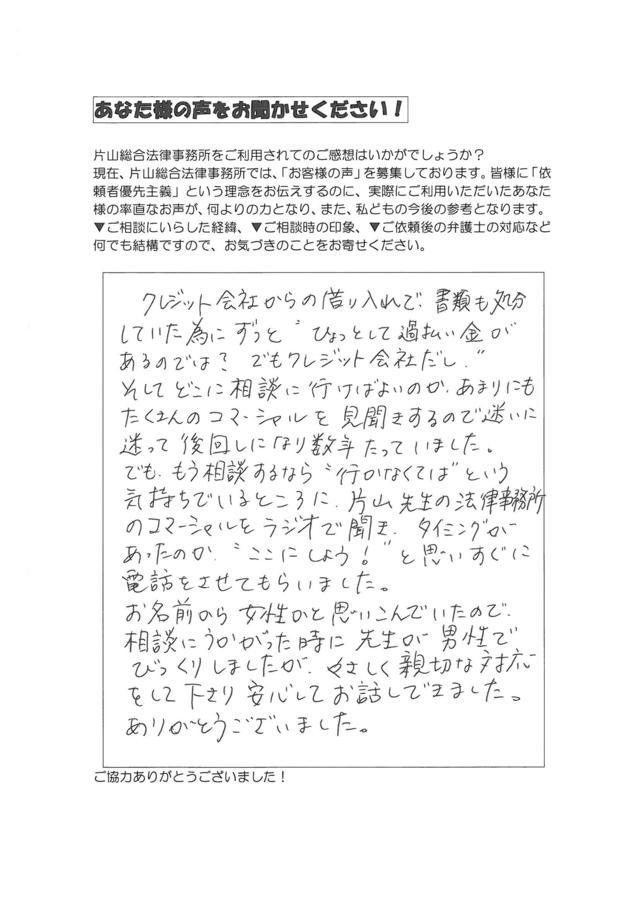 あなた様の声をお聞かせください！
片山総合法律事務所をご利用されてのご感想はいかがでしょうか？
現在、片山総合法律事務所では、「お客様の声」を募集しております。皆様に「依
頼者優先主義」という理念をお伝えするのに、実際にご利用いただいたあなた
様の率直なお声が、何よりの力となり、また、私どもの今後の参考となります。
▼ご相談にいらした経緯、▼ご相談時の印象、▼ご依頼後の弁護士の対応など
何でも結構ですので、お気づきのことをお寄せください。
クレジット会社からの借り入れで、書類も処分
していた為にずっと〝ひょっとして過払い金が
あるのでは？でもクレジット会社だし〟
そしてどこに相談に行けばよいのか、あまりにも
たくさんのコマーシャルを見聞きするので迷いに
迷って後回しになり数年たっていました。
でも、もう相談するなら〝行かなくては〟という
気持ちでいるところに、片山先生の法律事務所
のコマーシャルをラジオで聞き、タイミングが
あったのか、〝ここにしよう！〟と思いすぐに
電話をさせてもらいました。
お名前から女性かと思いこんでいたので、
相談にうかがった時に先生が男性で
びっくりしましたが、やさしく親切な対応
をして下さり安心してお話しできました。
ありがとうございました。
ご協力ありがとうございました！